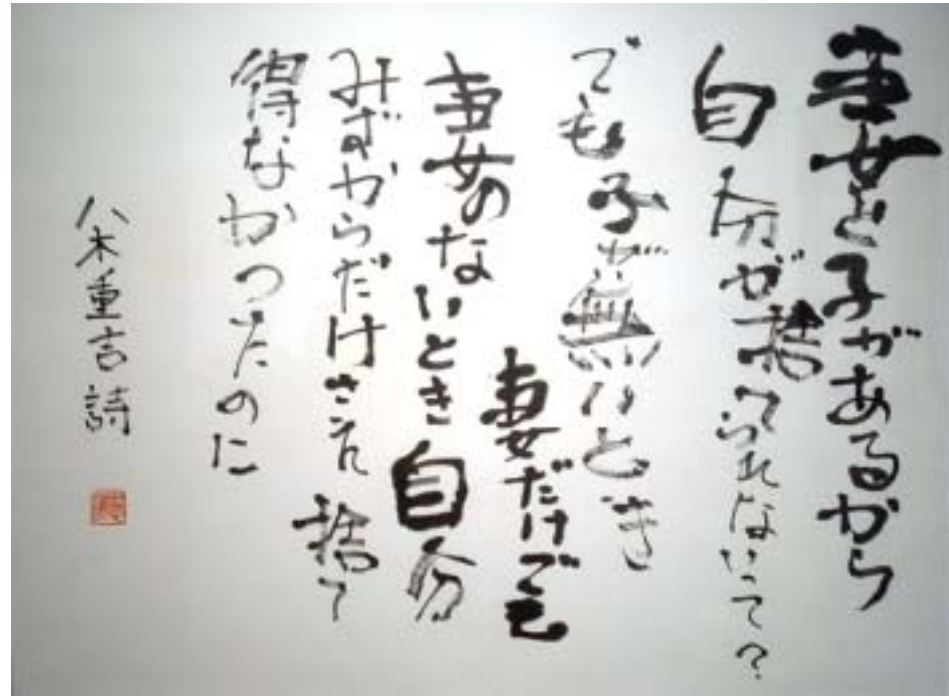 妻と子があるから
自分が捨てられないって?
でも子が無いとき
妻だけでも
妻のないとき自分
みずからだけさえ捨て
得なかつたのに
八木重吉詩